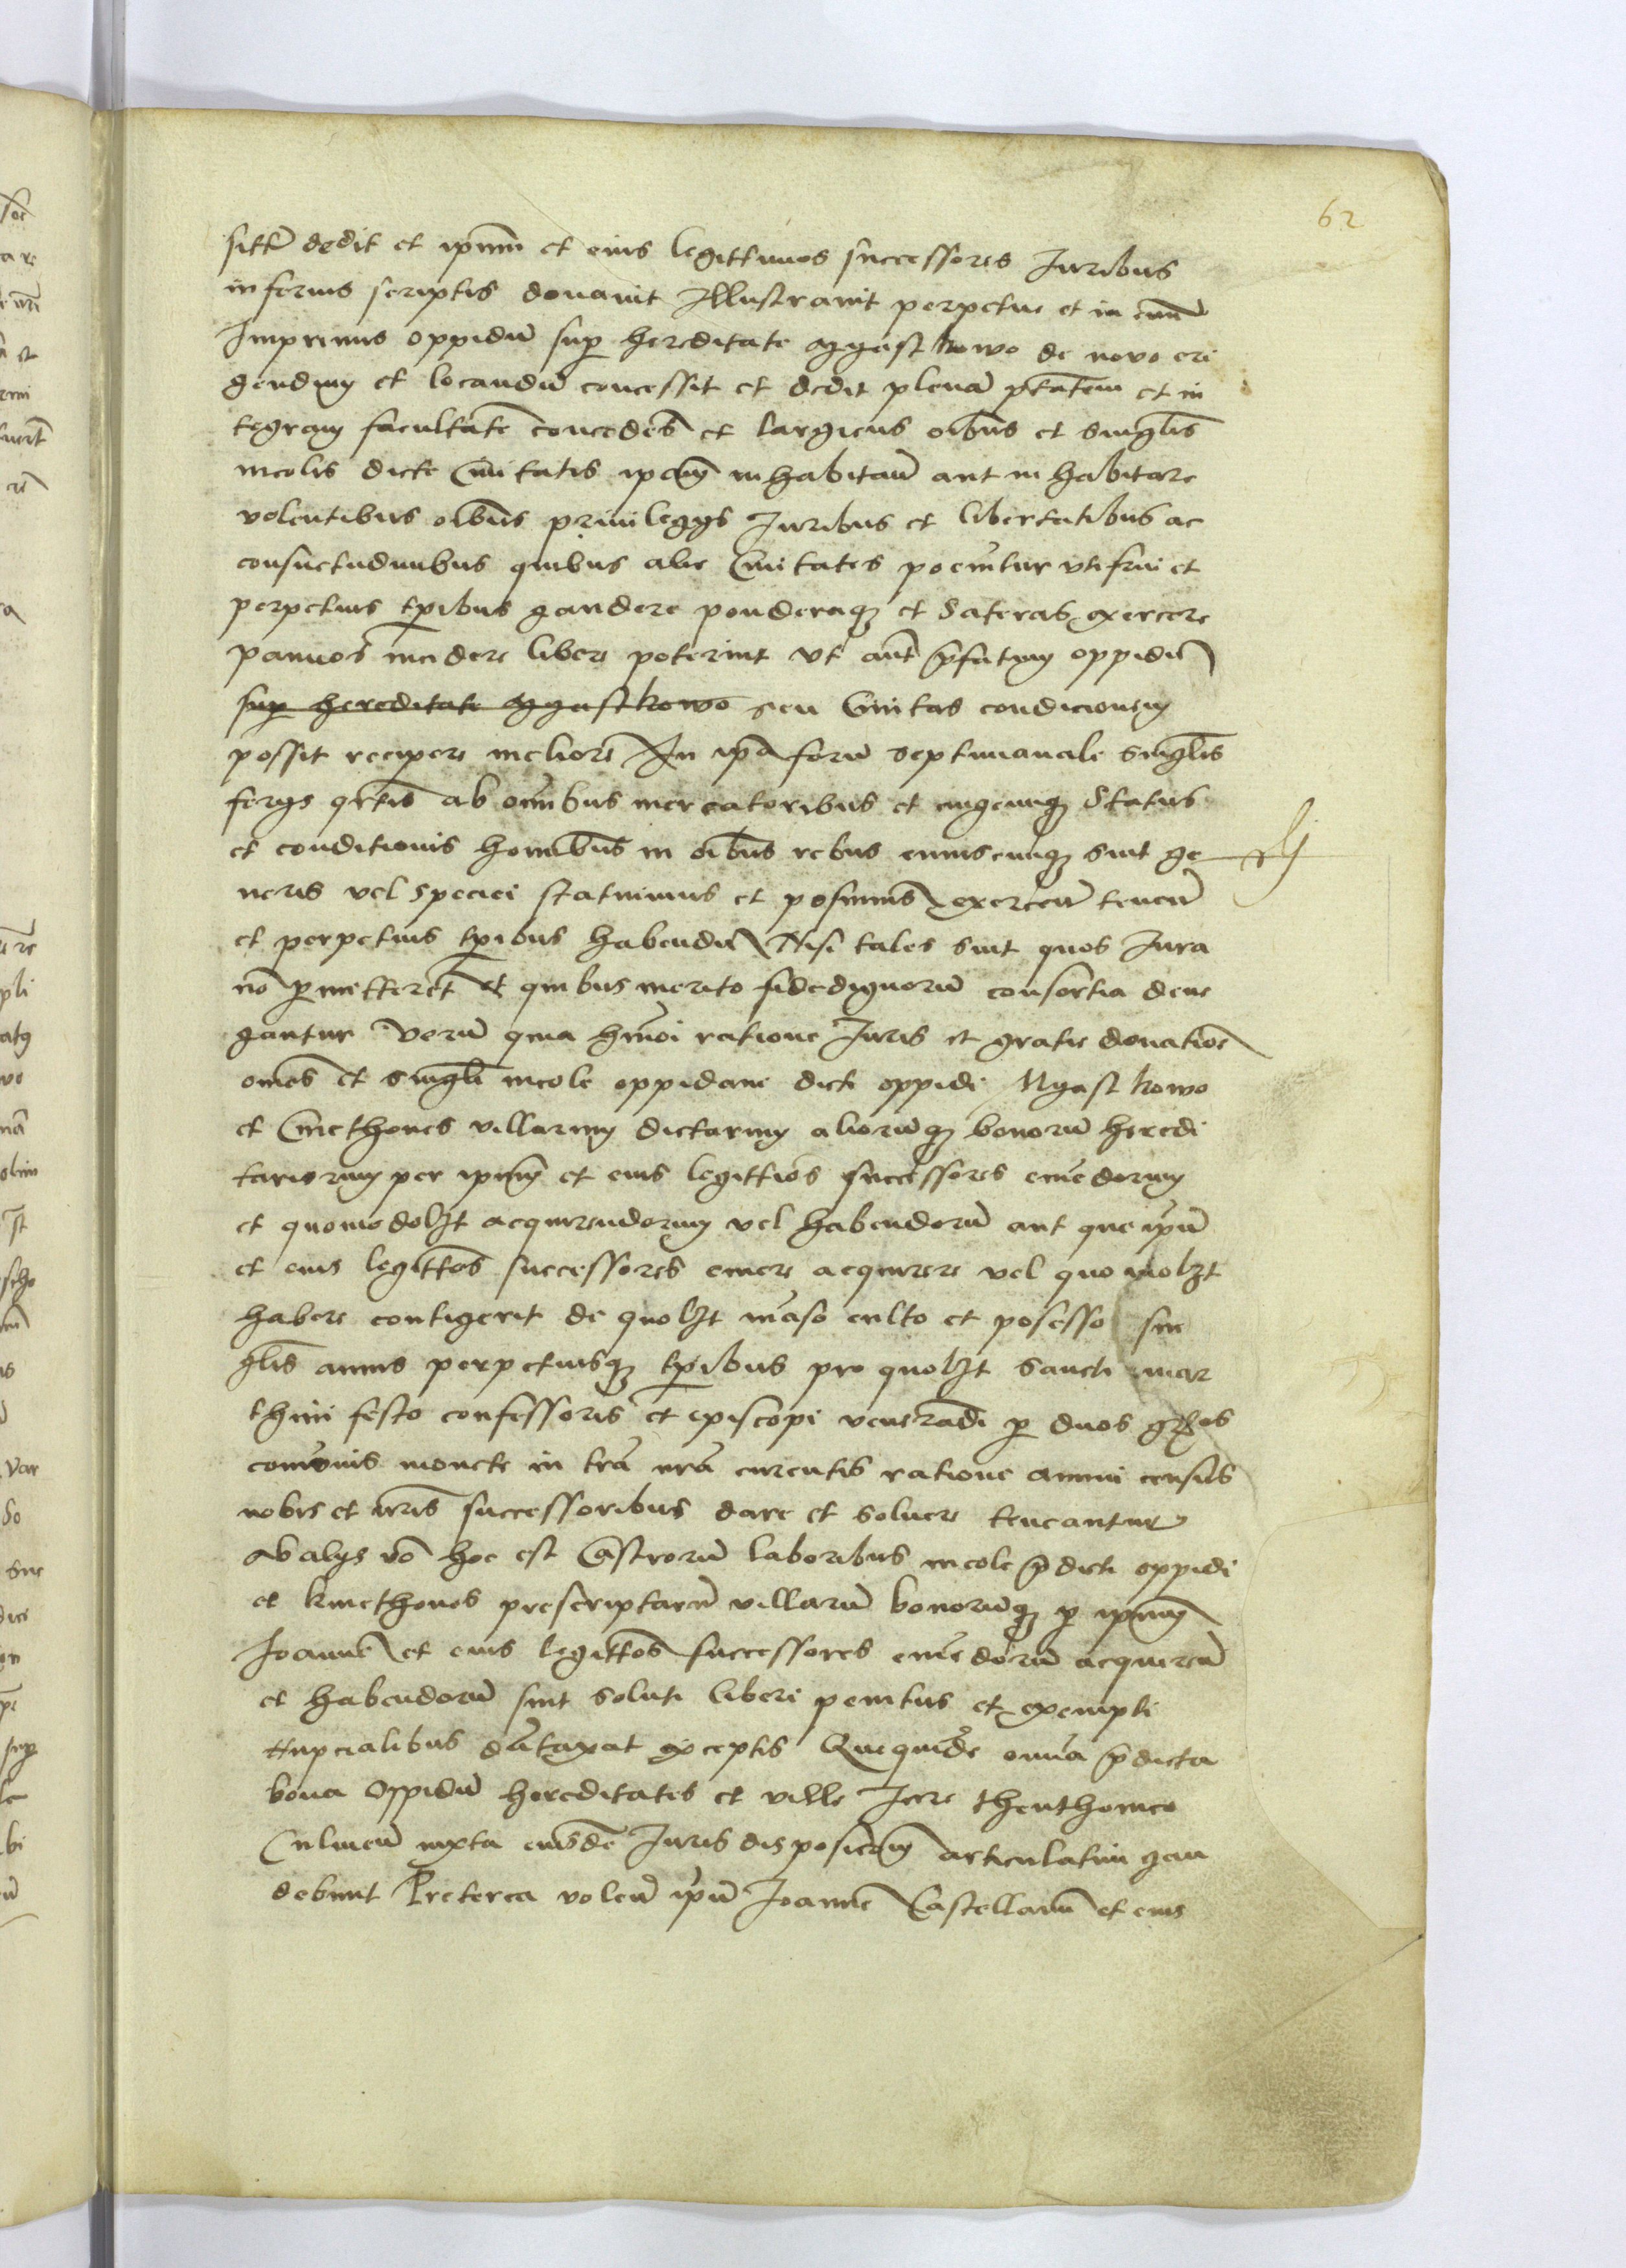 62
sittr dedit et ipnm et eius legittimos successores Iuribus
inferius scriptis donavit Illustravit perpetue et in evum
Inprimis oppidu sup hereditate Mgastkowo de novo eri
gendum et locandu concessit et dedit plena ptatem et in
tegram facultate concedes et largiens oibus et singlis
incolis dicte Civitatis ipam inhabitan aut inhabitare
volentibus oibus privilegys Iuribus et libertatibus ac
consuetudinibus quibus alie Civitates pociuntur uti frui et
perpetuis tpibus gaudere ponderaq et Stateras exercere
pannos incidere libere poterint Ut aut pfatum oppidu
sup hereditate Mgastkowo seu Civitas condicionem
possit recipere meliore In ipa foru septimanale singlis
ferys qrtis ab omibus mercatoribus et cuiuscunq Status
et conditionis homibus in oibus rebus cuiuscunq sint ge
neris vel speciei statuimus et posuimus exercen tenen
et perpetuis tpibus habendu Nisi tales sint quos Iura
no pmitteret et quibus merito fidedignoru consortia dene
gantur Veru quia hmoi ratione Iuris et gratie donatioe
omes et singli incole oppidane dicti oppidi Mgastkowo
et Cmethones villarum dictarum alioruq bonoru heredi
tariorum per ipum et eius legittios successores emedorum
et quomodolzt acquirendorum vel habendoru aut que ipu
et eius legittos successores emere acquirere vel quomolzt
habere contigerit de quolzt maso culto et posesso sin
glis annis perpetuisq tpibus pro quolzt sancti mar
thini festo confessoris et episcopi venerandi p duos gros
comunis monete in tra nra curentis ratione annui census
nobis et nris successoribus dare et solvere teneantur
Ab alys vo hoc est Castroru laboribus incole pdicti oppidi
et kmethones prescriptaru villaru bonoruq p ipum
Joanne et eius legittos successores emedoru acquiren
et habendoru sint soluti liberi penitus et exempti
Nupcialibus dutaxat exceptis Que quide omia pdicta
bona Oppidu hereditates et ville Iure thenthonico
Culmen iuxta eiusde Iuris disposicoem articulatim gau
debunt Preterea volen ipu Joanne Castellanu et eius